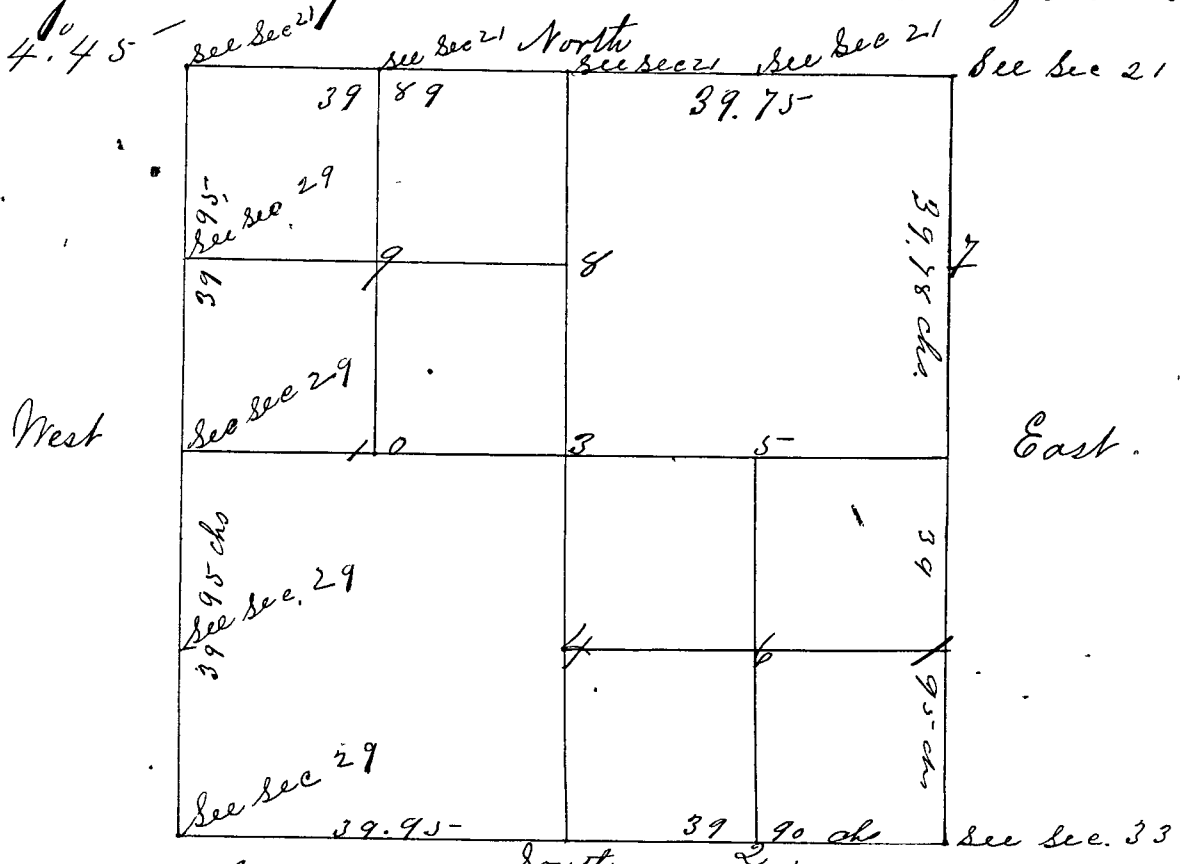 4.°45
See Sec 21 See Sec 21 North See Sec 21 See Sec 21 See Sec 21
39 89 39.75
39 95 See Sec. 29
9 8 39.78 chs. 7
See Sec 29
West 10 3 5 East.
39 95 chs
See Sec. 29 4 6 1 39 95 chs
See Sec 29
39.95 39 90 chs See Sec. 33
South 2